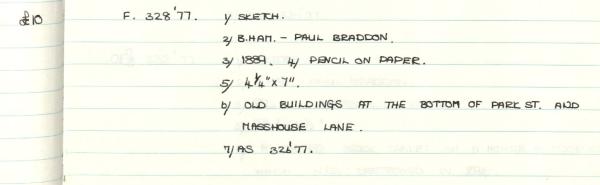 £10 F. 328'77. 1/ SKETCH.
2/ B.HAM. - PAUL BRADDON.
3/ 1889. 4/ PENCIL ON PAPER.
5/ 4 1/4" x 7".
6/ OLD BUILDINGS AT THE BOTTOM OF PARK ST. AND
MASSHOUSE LANE.
7/ AS 326'77.